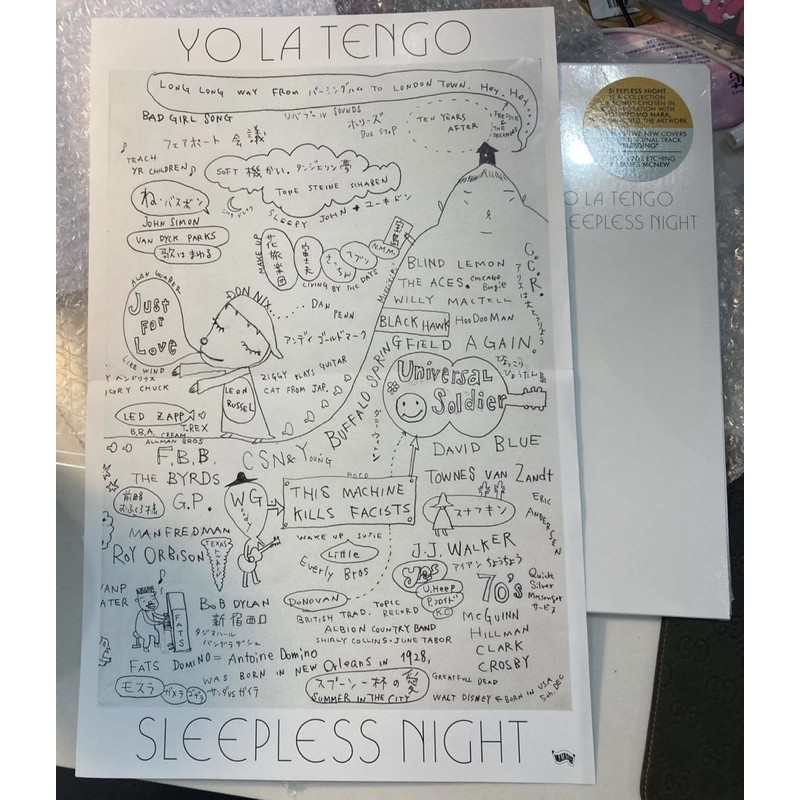 YO LA TENGO
LONG LONG WAY FROM バーミンガム TO LONDON TOWN. HEY, HEY...
BAD GIRL SONG
リバプール SOUNDS
ホリーズ
TEN YEARS
AFTER
FREDDIE
& THE
DREAMERS
フェアポート 会議
TEACH
YR CHILDREN
SOFT 機かい。タンジェリン夢
TONE STEINE SCHABEN
SLEEPY JOHN
ね・バスボン
JOHN SIMON
VAN DYCK PARKS
歌はまわる
MAKE UP
花旅楽団
LIVING BY THE DAYS
N.M.M.
BLIND LEMON
THE ACES.
CHICAGO
Boogie
WILLY MACTELL
BLACK HAWK
HooDooMAN
C.C.R.
ALAN
JUST
FOR
LOVE
DON NIX......
DAN
PENN
アンディゴールドマーク
LIKE WIND
IGRY CHUCK
LEON
RUSSEL
ZIGGY PLAYS GUITAR
CAT FROM JAP.
BUFFALO SPRINGFIELD AGAIN.
Universal
Soldier
ひょっこり
ひょうたん
LED ZAPP
B.B.A
CREAM
T.REX
ALLMAN BROS
F.B.B.
CSN&Young
DAVID BLUE
THE BYRDS
G.P.
WG
POCO
THIS MACHINE
KILLS FACISTS
TOWNES VAN Zandt
スナフキン
ERIC
ANDERSEN
MANFREDMAN
ROY ORBISON
TEXAS
WAKE UP SUZIE
Little
Everly Bros
J.J. WALKER
アイアン ちょうちょう
U.Heep
P.フロイド
K.C
70's
Quick
Silver
Messenger
サービス
BOB DYLAN
新宿西口
タジマハール
バングラデシュ
FATS
DONOVAN
BRITISH TRAD. TOPIC
RECORD
ALBION COUNTRY BAND
SHIRLY COLLINS・JUNE TABOR
McGUINN
HILLMAN
CLARK
CROSBY
FATS DOMINO = Antoine Domino
WAS BORN IN NEW Orleans IN 1928,
モスラ
ガメラ
ゴジラ
サンダvsガイラ
スプーン一杯の愛
SUMMER IN THE CITY
GREATFULL DEAD
WALT DISNEY
BORN IN USA
5th, DEC
SLEEPLESS NIGHT
SLEEPLESS NIGHT
IS A COLLECTION
OF SONGS CHOSEN IN
YO LA TENGO
SLEEPLESS NIGHT